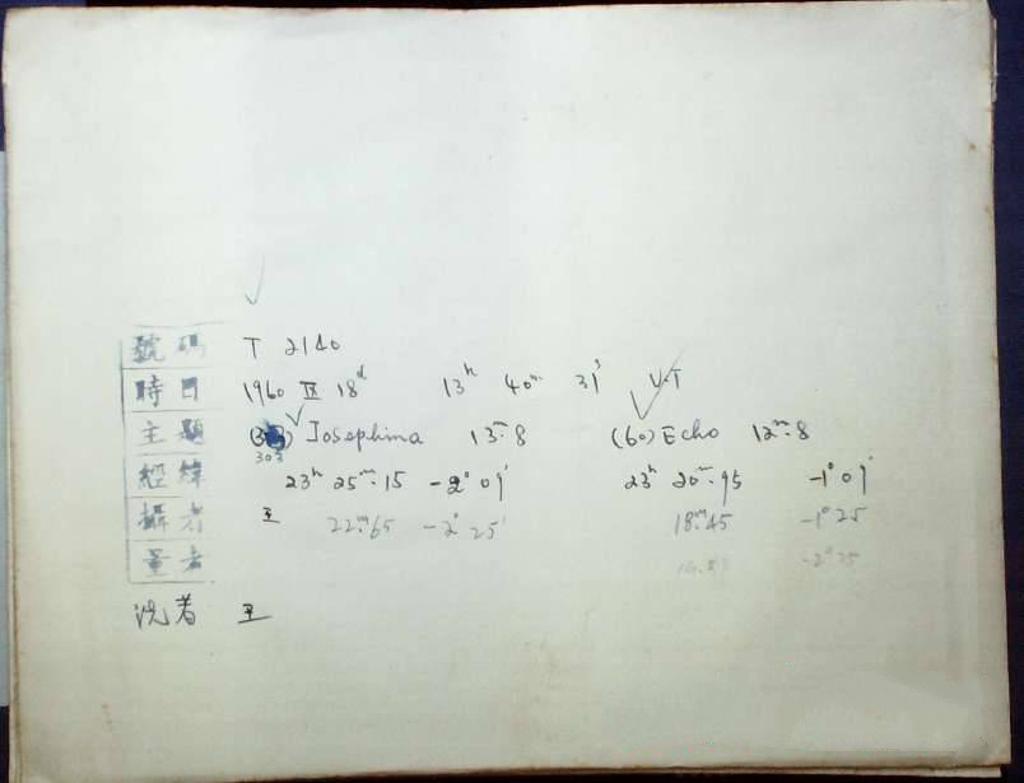 號碼 T 2140
時日 1960 IX 18ᵈ 13ʰ 40ᵐ 31ˢ U.T
主題 (303) Josephina 13ᵐ.8 (60) Echo 12ᵐ.8
303
經緯 23ʰ 25ᵐ.15 -2°09' 23ʰ 20ᵐ.95 -1°09'
攝者 王 22ᵐ.65 -2°25' 18ᵐ.45 -1°25
量者 -2°25
洗者 王